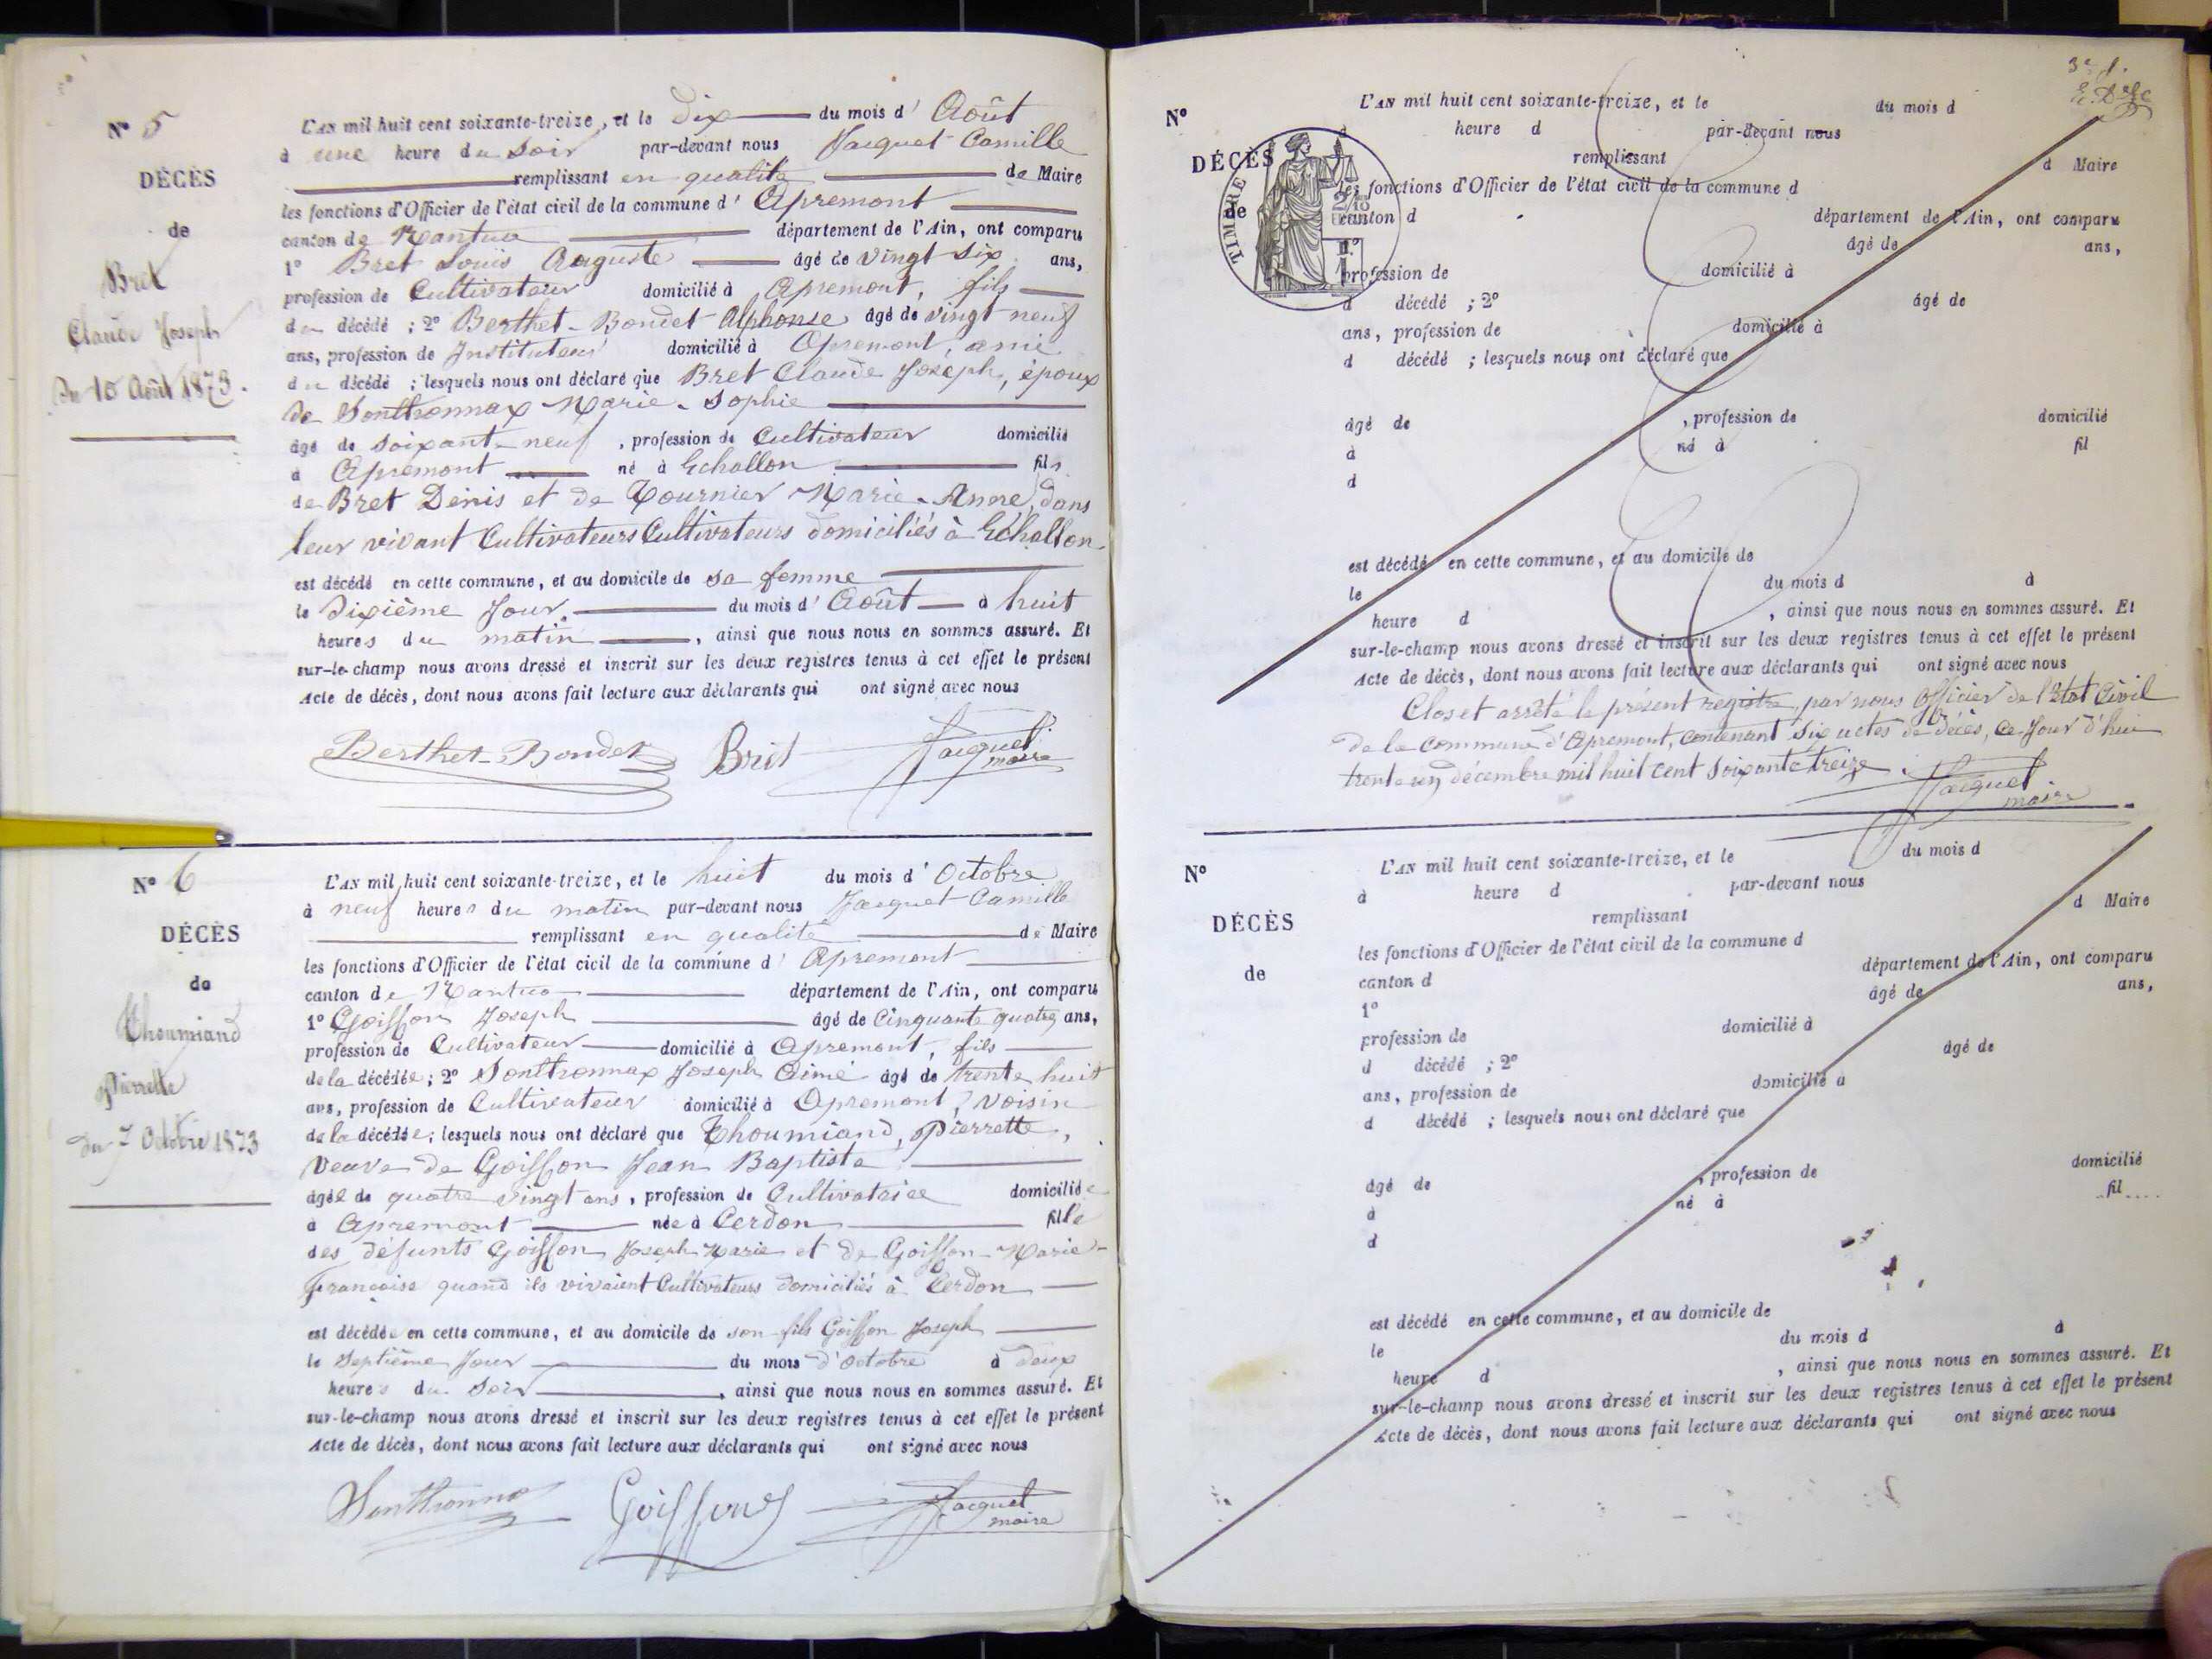 N° 5
DÉCÈS
de
Bret
Claude Joseph
Du 10 Août 1873.
L'AN mil huit cent soixante-treize, et le dix du mois d' Août
à une heure du soir par-devant nous Jacquet Camille
remplissant en qualité de Maire
les fonctions d'Officier de l'état civil de la commune d' Apremont
canton de Nantua département de l'Ain, ont comparu
1° Bret Louis Auguste âgé de vingt six ans,
profession de Cultivateur domicilié à Apremont, fils
du décédé ; 2° Berthet-Bondet Alphonse âgé de vingt neuf
ans, profession de Instituteur domicilié à Apremont, ami
du décédé ; lesquels nous ont déclaré que Bret Claude Joseph, époux
de Sonthonnax Marie-Sophie
âgé de soixante neuf , profession de Cultivateur domicilié
à Apremont né à Echallon fils
de Bret Denis et de Tournier Marie-Anne, dans
leur vivant Cultivateurs Cultivateurs domiciliés à Echallon.
est décédé en cette commune, et au domicile de sa femme
le dixième Jour du mois d' Août à huit
heures du matin , ainsi que nous nous en sommes assuré. Et
sur-le-champ nous avons dressé et inscrit sur les deux registres tenus à cet effet le présent
Acte de décès, dont nous avons fait lecture aux déclarants qui ont signé avec nous
Berthet-Bondet Bret Jacquet
maire
N° 6
DÉCÈS
de
Thoumiand
Pierrette
du 7 Octobre 1873
L'AN mil huit cent soixante-treize, et le huit du mois d' Octobre
à neuf heures du matin par-devant nous Jacquet Camille
remplissant en qualité de Maire
les fonctions d'Officier de l'état civil de la commune d' Apremont
canton de Nantua département de l'Ain, ont comparu
1° Goiffon Joseph âgé de Cinquante quatre ans,
profession de Cultivateur domicilié à Apremont, fils
de la décédée ; 2° Sonthonnax Joseph Aimé âgé de trente huit
ans, profession de Cultivateur domicilié à Apremont, voisin
de la décédée ; lesquels nous ont déclaré que Thoumiand, Pierrette,
veuve de Goiffon Jean Baptiste
âgée de quatre vingt ans , profession de Cultivatrice domiciliée
à Apremont née à Cerdon fille
des défunts Goiffon Joseph Marie et de Goiffon Marie-
Françoise quand ils vivaient Cultivateurs domiciliés à Cerdon
est décédée en cette commune, et au domicile de son fils Goiffon Joseph
le Septième Jour du mois d'octobre à deux
heures du soir , ainsi que nous nous en sommes assuré. Et
sur-le-champ nous avons dressé et inscrit sur les deux registres tenus à cet effet le présent
Acte de décès, dont nous avons fait lecture aux déclarants qui ont signé avec nous
Sonthonnax Goiffon J Jacquet
maire
3e f.
N°
DÉCÈS
de
TIMBRE
2/10
L'AN mil huit cent soixante-treize, et le du mois d
à heure d par-devant nous
remplissant d Maire
les fonctions d'Officier de l'état civil de la commune d
canton d département de l'Ain, ont comparu
1° âgé de ans,
profession de domicilié à
d décédé ; 2° âgé de
ans, profession de domicilié à
d décédé ; lesquels nous ont déclaré que
âgé de , profession de domicilié
à né à fil
d
est décédé en cette commune, et au domicile de
le du mois d à
heure d , ainsi que nous nous en sommes assuré. Et
sur-le-champ nous avons dressé et inscrit sur les deux registres tenus à cet effet le présent
Acte de décès, dont nous avons fait lecture aux déclarants qui ont signé avec nous
Clos et arrêté le présent registre, par nous Officier de l'Etat Civil
de la commune d'Apremont, contenant six actes de décès, ce Jour d'hui
trente un décembre mil huit cent soixante treize.
Jacquet
maire
N°
DÉCÈS
de
L'AN mil huit cent soixante-treize, et le du mois d
à heure d par-devant nous
remplissant d Maire
les fonctions d'Officier de l'état civil de la commune d
canton d département de l'Ain, ont comparu
1° âgé de ans,
profession de domicilié à
d décédé ; 2° âgé de
ans, profession de domicilié à
d décédé ; lesquels nous ont déclaré que
âgé de , profession de domicilié
à né à fil
d
est décédé en cette commune, et au domicile de
le du mois d à
heure d , ainsi que nous nous en sommes assuré. Et
sur-le-champ nous avons dressé et inscrit sur les deux registres tenus à cet effet le présent
Acte de décès, dont nous avons fait lecture aux déclarants qui ont signé avec nous